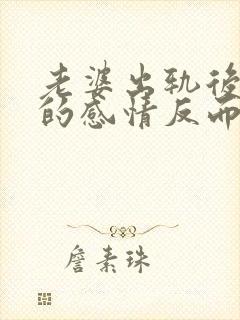 老婆出轨後
的感情反而
詹素珠